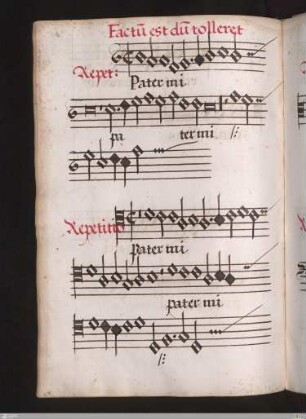 Factū est dū tolleret
Repet:
Pater mi
pa ter mi
Repetitio
Pater mi
pater mi